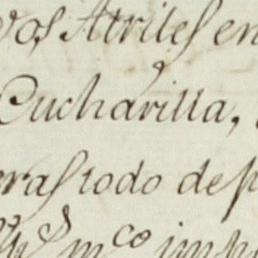 os Atriles en
Cucharilla,
ras todo de p
m.co imp